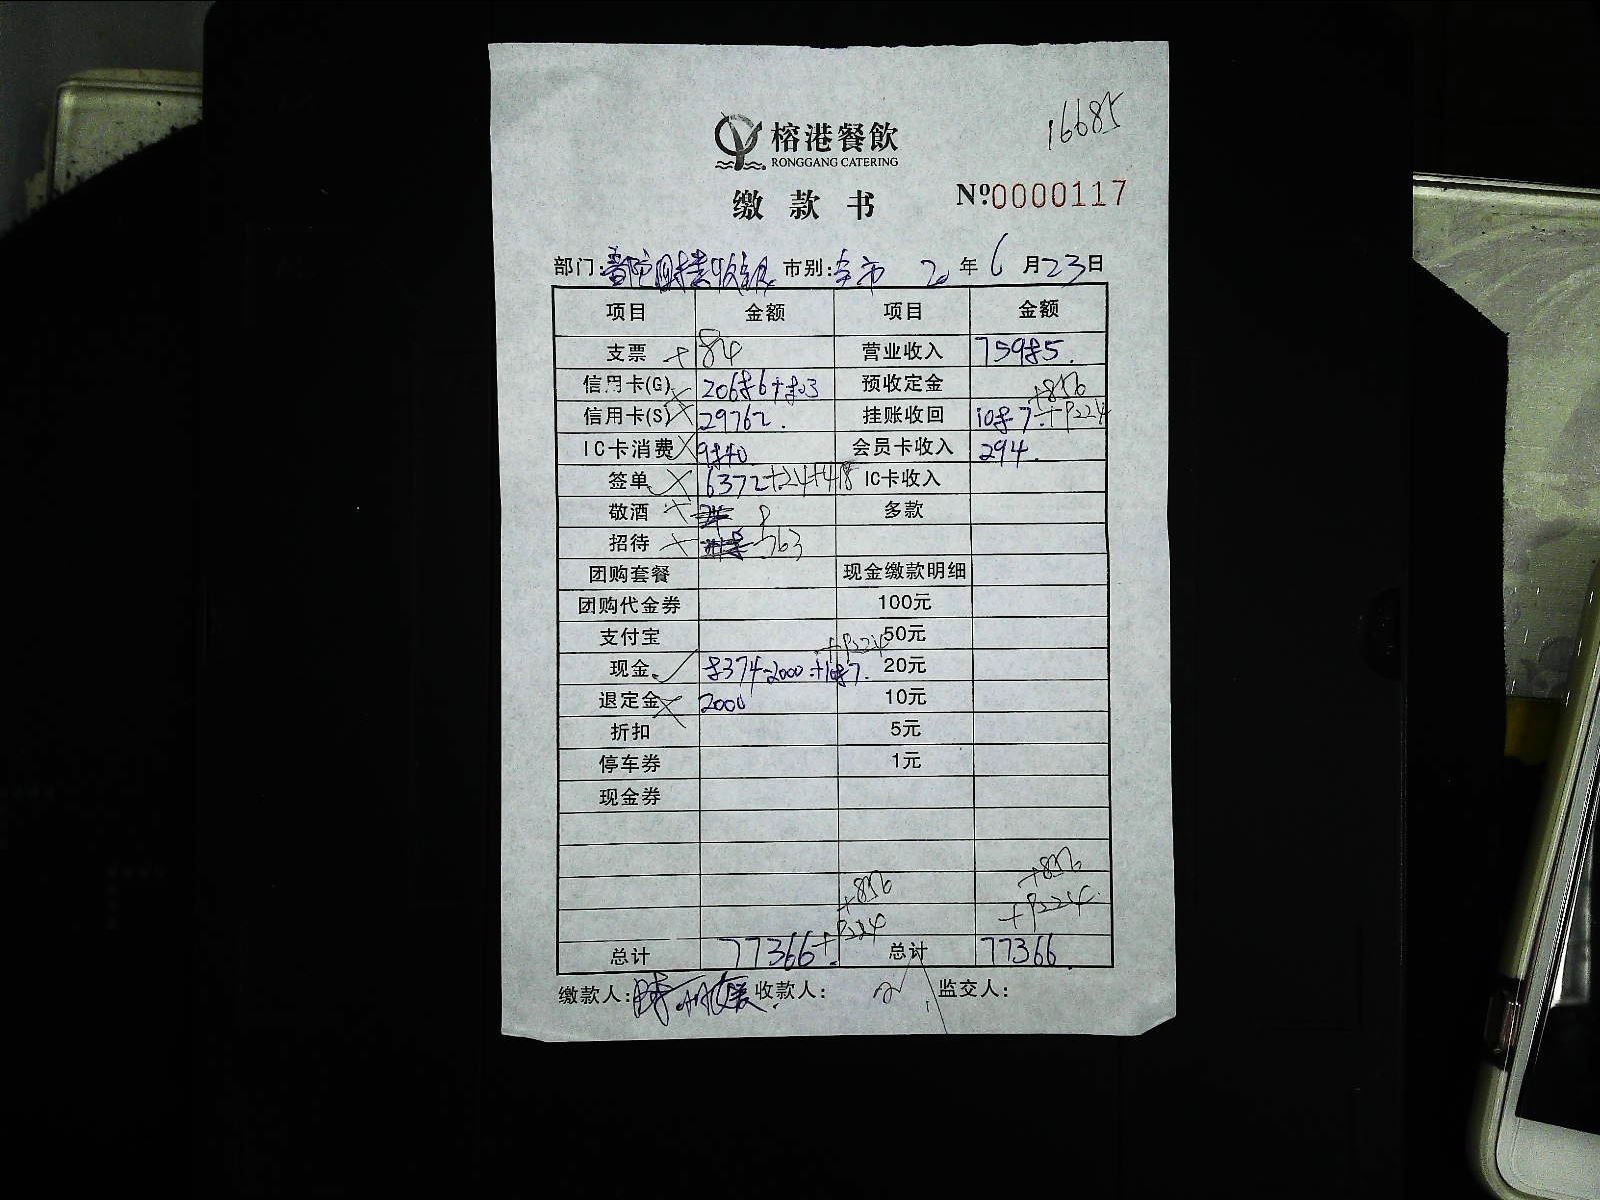 16685
榕港餐飲
RONGGANG CATERING
缴 款 书 Nº0000117
部门: 市别: 市 20 年 6 月 23 日
项目 金额 项目 金额
支票 84 营业收入 75985.
信用卡(G) 20686+803 预收定金 +856
信用卡(S) 29762. 挂账收回 1087.+P224
IC卡消费 9840. 会员卡收入 294.
签单 6372+24+418 IC卡收入
敬酒 8 多款
招待 763
团购套餐 现金缴款明细
团购代金券 100元
支付宝 +P224 50元
现金 8374-2000.+1087. 20元
退定金 2000 10元
折扣 5元
停车券 1元
现金券
+856 +856
P224 +P224.
总计 77366+. 总计 77366.
缴款人: 收款人: 监交人: